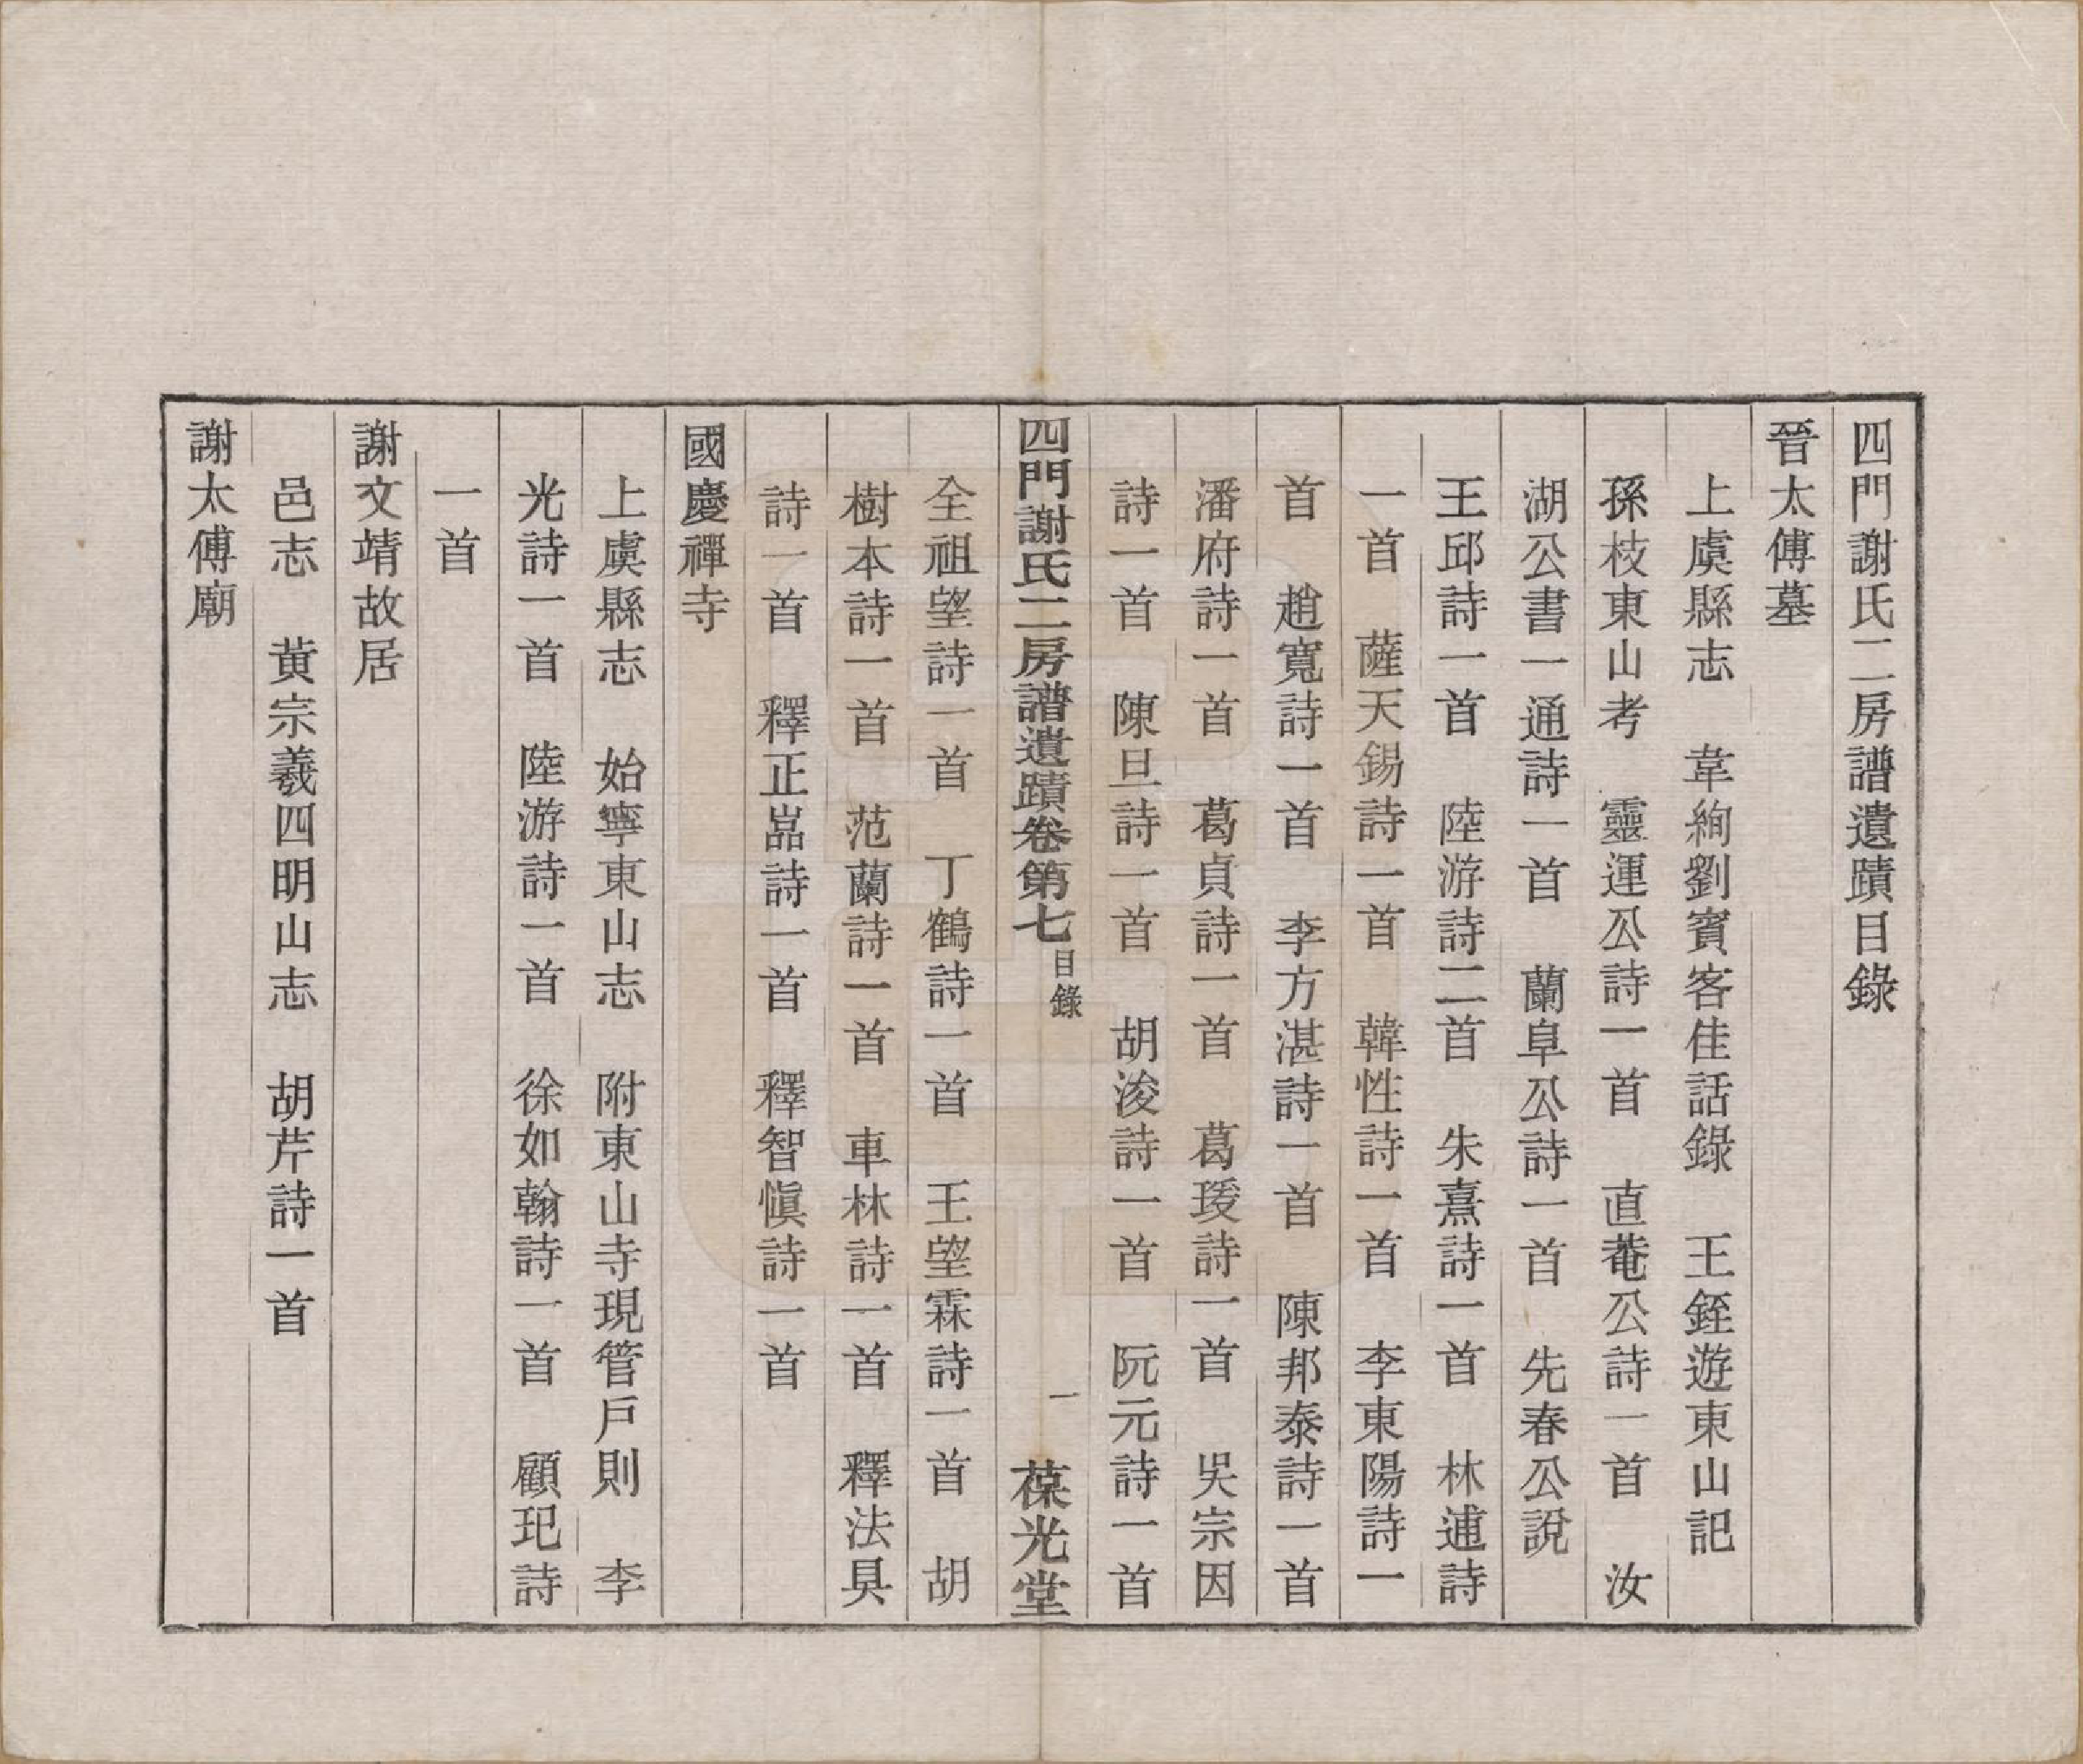 四門謝氏二房譜遺蹟目錄
晉太傅墓
上虞縣志　韋絢劉賓客佳話錄　王銍遊東山記
孫枝東山考　靈運公詩一首　直菴公詩一首　汝
湖公書一通詩一首　蘭阜公詩一首　先春公說
王邱詩一首　陸游詩二首　朱熹詩一首　林逋詩
一首　薩天錫詩一首　韓性詩一首　李東陽詩一
首　趙寬詩一首　李方湛詩一首　陳邦泰詩一首
潘府詩一首　葛貞詩一首　葛瑗詩一首　吳宗因
詩一首　陳旦詩一首　胡浚詩一首　阮元詩一首
四門謝氏二房譜遺蹟卷第七　目錄　一　葆光堂
全祖望詩一首　丁鶴詩一首　王望霖詩一首　胡
樹本詩一首　范蘭詩一首　車林詩一首　釋法具
詩一首　釋正嵓詩一首　釋智愼詩一首
國慶禪寺
上虞縣志　始寧東山志　附東山寺現管戶則　李
光詩一首　陸游詩一首　徐如翰詩一首　顧玘詩
一首
謝文靖故居
邑志　黃宗羲四明山志　胡芹詩一首
謝太傅廟